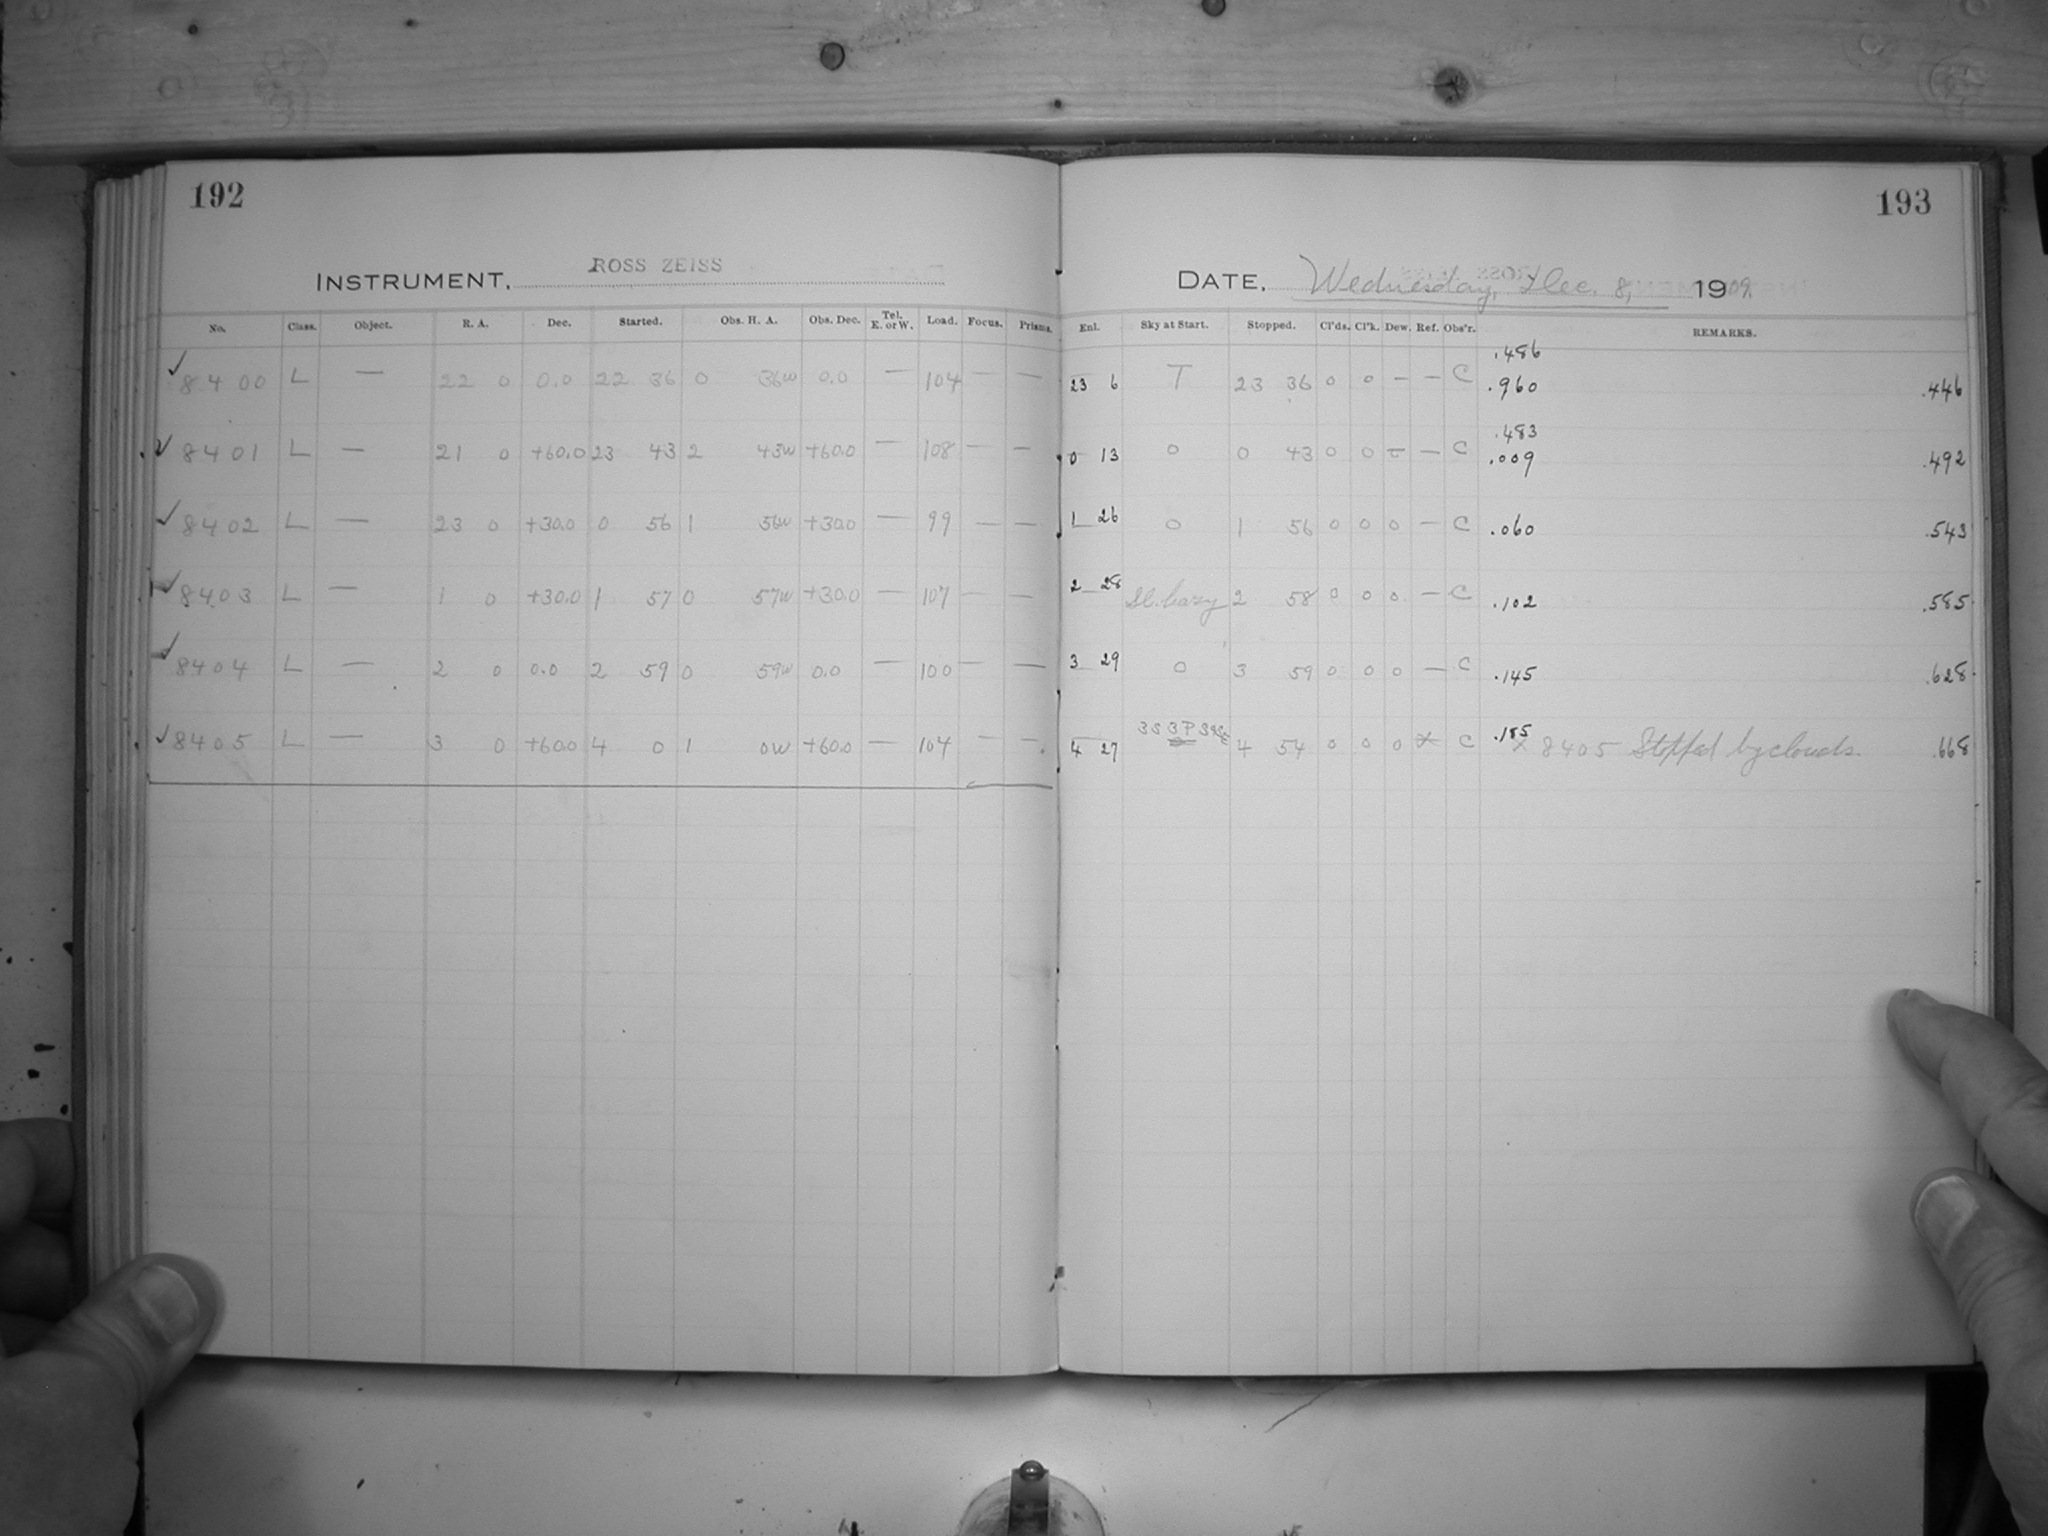 192
INSTRUMENT. ROSS ZEISS
No. Class. Object. R. A. Dec. Started. Obs. H. A. Obs. Dec. Tel. E. or W. Load. Focus. Prisms.
✓ 8400 L — 22 0 0.0 22 36 0 36w 0.0 — 104 — —
✓ 8401 L — 21 0 +60.0 23 43 2 43w +60.0 — 108 — —
✓ 8402 L — 23 0 +30.0 0 56 1 56w +30.0 — 99 — —
✓ 8403 L — 1 0 +30.0 1 57 0 57w +30.0 — 107 — —
✓ 8404 L — 2 0 0.0 2 59 0 59w 0.0 — 100 — —
✓ 8405 L — 3 0 +60.0 4 0 1 0w +60.0 — 104 — —
193
DATE. Wednesday, Dec. 8, 1909.
Enl. Sky at Start. Stopped. Cl'ds. Cl'k. Dew. Ref. Obs'r. REMARKS.
.486
23 6 T 23 36 0 0 — — C .960 .446
.483
0 13 0 0 43 0 0 — — C .009 .492
1 26 0 1 56 0 0 0 — C .060 .543
2 28 Sl. hazy 2 58 0 0 0 — C .102 .585
3 29 0 3 59 0 0 0 — C .145 .628
4 27 3S 3P 4 54 0 0 0 x C .185 x 8405 Stopped by clouds. .668